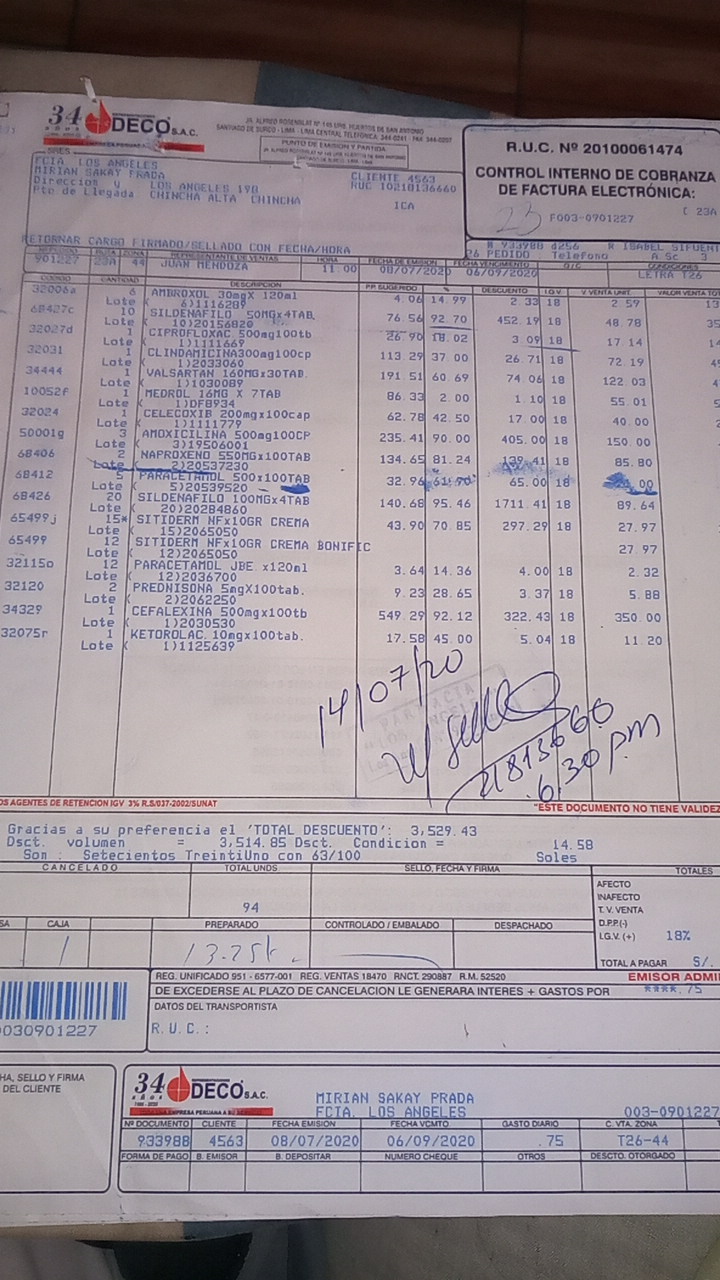 34 AÑOS DECO S.A.C.
JR. ALFREDO ROSENBLAT Nº 146 URB. HUERTOS DE SAN ANTONIO
SANTIAGO DE SURCO - LIMA - LIMA CENTRAL TELEFÓNICA: 344-0241
PUNTO DE EMISIÓN Y PARTIDA
R.U.C. Nº 20100061474
CONTROL INTERNO DE COBRANZA
DE FACTURA ELECTRÓNICA:
23 F003-0901227 C 23A
FCIA. LOS ANGELES
MIRIAN SAKAY PRADA
Direccion y LOS ANGELES 190
Pto de Llegada CHINCHA ALTA CHINCHA
CLIENTE 4563
RUC 10218136660
ICA
RETORNAR CARGO FIRMADO/SELLADO CON FECHA/HORA
# 933988 d256 R ISABEL SIFUENT
26 PEDIDO Telefono A Sc 3
REPRESENTANTE DE VENTAS HORA FECHA DE EMISION FECHA VENCIMIENTO O/C CONDICIONES
901227 23A 44 JUAN MENDOZA 11.00 08/07/2020 06/09/2020 LETRA T26
CODIGO CANTIDAD DESCRIPCION P.P. SUGERIDO % DESCUENTO I.G.V. V.VENTA UNIT. VALOR VENTA TOT
32006a AMBROXOL 30mgX 120ml 4.06 14.99 2.33 18 2.59 13
Lote 6)1116289
68427c 10 SILDENAFILO 50MGx4TAB. 76.56 92.70 452.19 18 48.78 35
Lote 10)20156820
32027d 1 CIPROFLOXAC.500mg100tb 26.90 18.02 3.09 18 17.14 14
Lote 1)1111669
32031 1 CLINDAMICINA300mg100cp 113.29 37.00 26.71 18 72.19
Lote 1)2033060
34444 1 VALSARTAN 160MGx30TAB. 191.51 60.69 74.06 18 122.03 4
Lote 1)1030089
10052f 1 MEDROL 16MG X 7TAB 86.33 2.00 1.10 18 55.01 5
Lote 1)DF8934
32024 1 CELECOXIB 200mgx100cap 62.78 42.50 17.00 18 40.00
Lote 1)1111779
50001g 3 AMOXICILINA 500mg100CP 235.41 90.00 405.00 18 150.00
Lote 3)19506001
68406 2 NAPROXENO 550MGx100TAB 134.65 81.24 139.41 18 85.80
Lote 2)20537230
68412 5 PARACETAMOL 500x100TAB 32.96 61.90 65.00 18
Lote 5)20539520
68426 20 SILDENAFILO 100MGx4TAB 140.68 95.46 1711.41 18 89.64
Lote 20)20284860
65499j 15* SITIDERM NFx10GR CREMA 43.90 70.85 297.29 18 27.97
Lote 15)2065050
65499 12 SITIDERM NFx10GR CREMA BONIFIC 27.97
Lote 12)2065050
32115o 12 PARACETAMOL JBE.x120ml 3.64 14.36 4.00 18 2.32
Lote 12)2036700
32120 2 PREDNISONA 5mgX100tab. 9.23 28.65 3.37 18 5.88
Lote 2)2062250
34329 1 CEFALEXINA 500mg100tb 549.29 92.12 322.43 18 350.00
Lote 1)2030530
32075r 1 KETOROLAC.10mgx100tab. 17.58 45.00 5.04 18 11.20
Lote 1)1125639
14/07/20
21813660
6:30 p.m
OS AGENTES DE RETENCION IGV 3% R.S/037-2002/SUNAT
"ESTE DOCUMENTO NO TIENE VALIDEZ
Gracias a su preferencia el 'TOTAL DESCUENTO': 3,529.43
Dsct. volumen = 3,514.85 Dsct. Condicion = 14.58
Son : Setecientos TreintiUno con 63/100 Soles
CANCELADO TOTAL UNDS SELLO, FECHA Y FIRMA TOTALES
94
AFECTO
INAFECTO
T. V. VENTA
D.P.P.(-)
I.G.V. (+) 18%
TOTAL A PAGAR S/.
SA CAJA PREPARADO CONTROLADO / EMBALADO DESPACHADO
REG. UNIFICADO 951 - 6577-001 REG. VENTAS 18470 RNCT. 290887 R.M. 52520
EMISOR ADMI
DE EXCEDERSE AL PLAZO DE CANCELACION LE GENERARA INTERES + GASTOS POR ****.75
DATOS DEL TRANSPORTISTA
R.U.C.:
0030901227
HA, SELLO Y FIRMA
DEL CLIENTE
34 AÑOS DECO S.A.C.
UNA EMPRESA PERUANA A SU SERVICIO
MIRIAN SAKAY PRADA
FCIA. LOS ANGELES
003-0901227
Nº DOCUMENTO CLIENTE FECHA EMISIÓN FECHA VCMTO GASTO DIARIO C. VTA. ZONA
933988 4563 08/07/2020 06/09/2020 .75 T26-44
FORMA DE PAGO B. EMISOR B. DEPOSITAR NUMERO CHEQUE OTROS DESCTO. OTORGADO